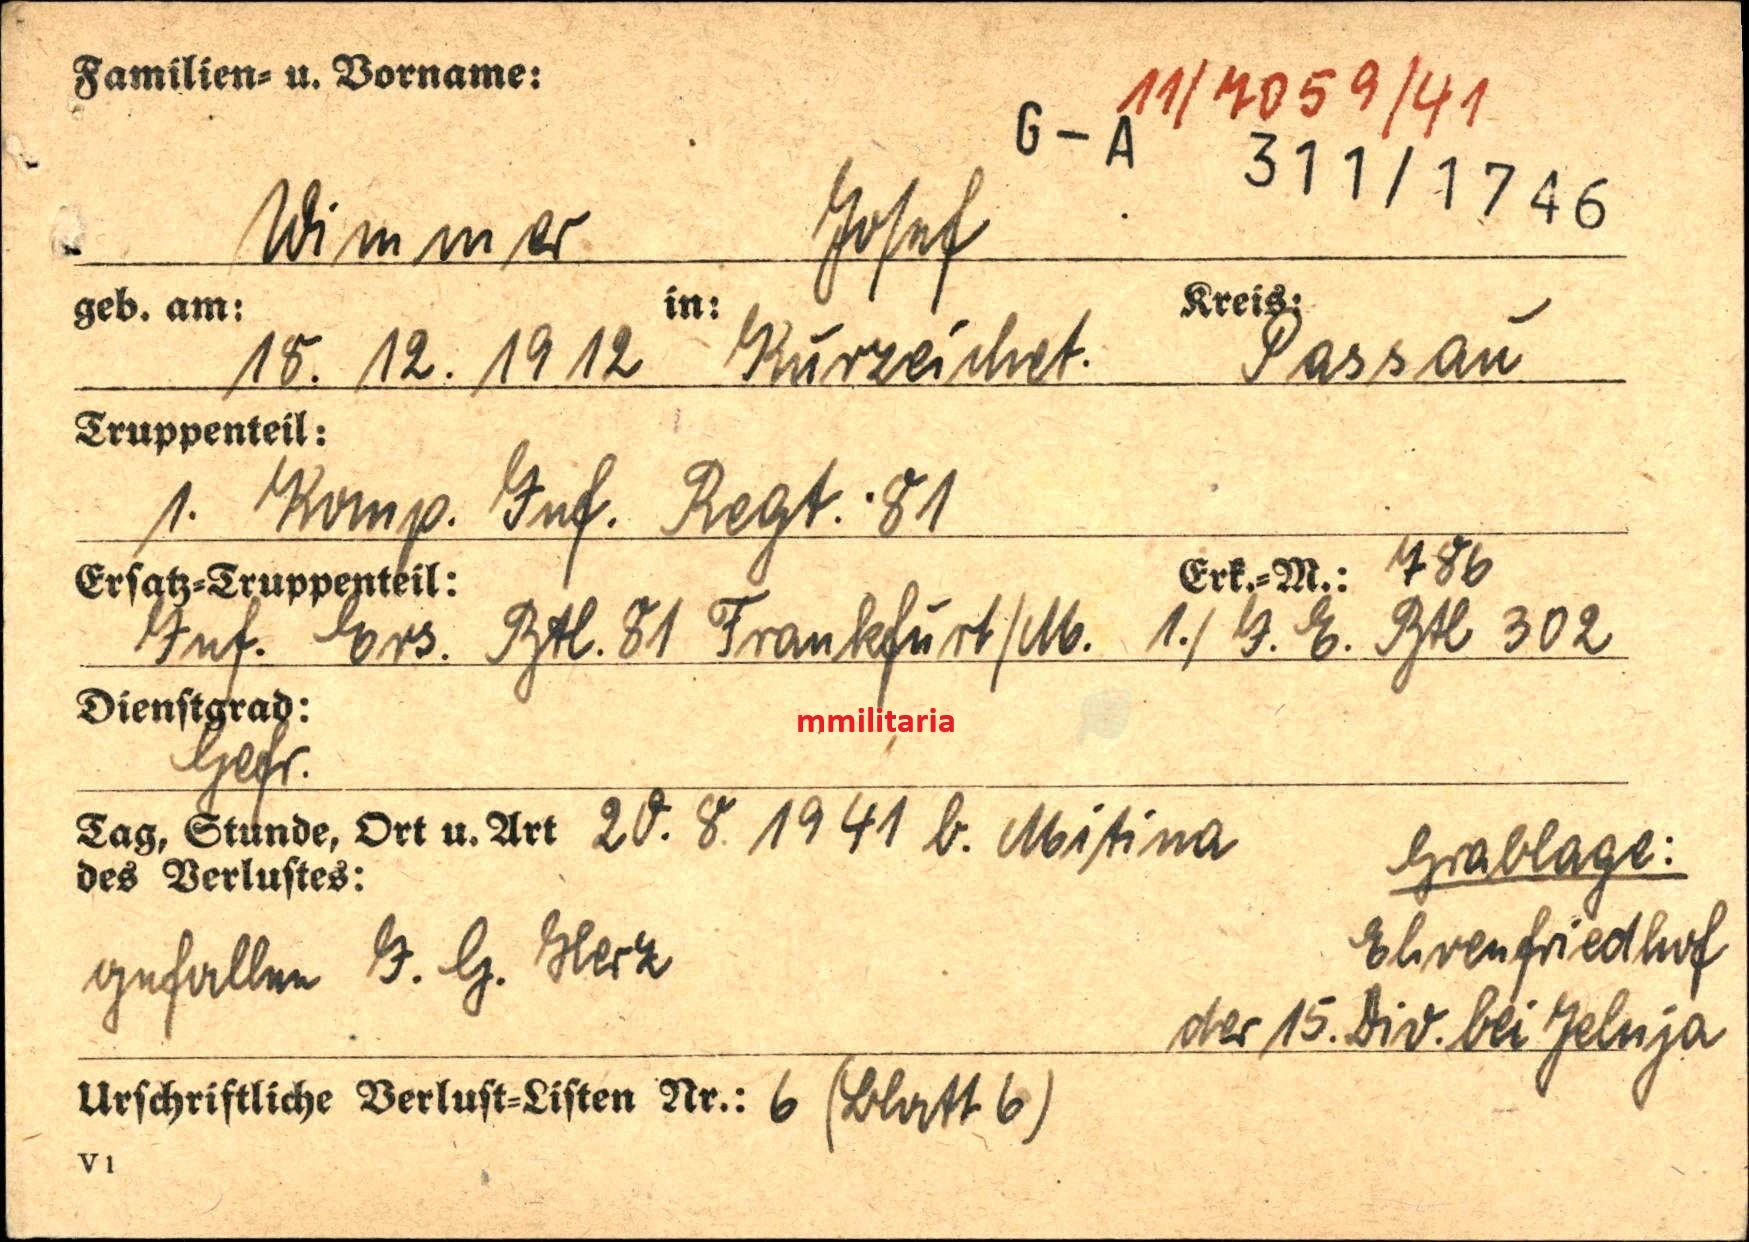 Familien- u. Vorname:
11/7059/41
G-A 311/1746
Wimmer Josef
geb. am: in: Kreis:
18. 12. 1912 Kurzeichet. Passau
Truppenteil:
1. Komp. Inf. Regt. 81
Ersatz-Truppenteil: Erk.-M.: 786
Inf. Ers. Btl. 81 Frankfurt/M. 1./ I. E. Btl 302
Dienstgrad:
mmilitaria
Gefr.
Tag, Stunde, Ort u. Art 20. 8. 1941 b. Mitina
des Verlustes:
Grablage:
gefallen I. G. Herz
Ehrenfriedhof
der 15. Div. bei Jelnja
Urschriftliche Verlust-Listen Nr.: 6 (Blatt 6)
V 1